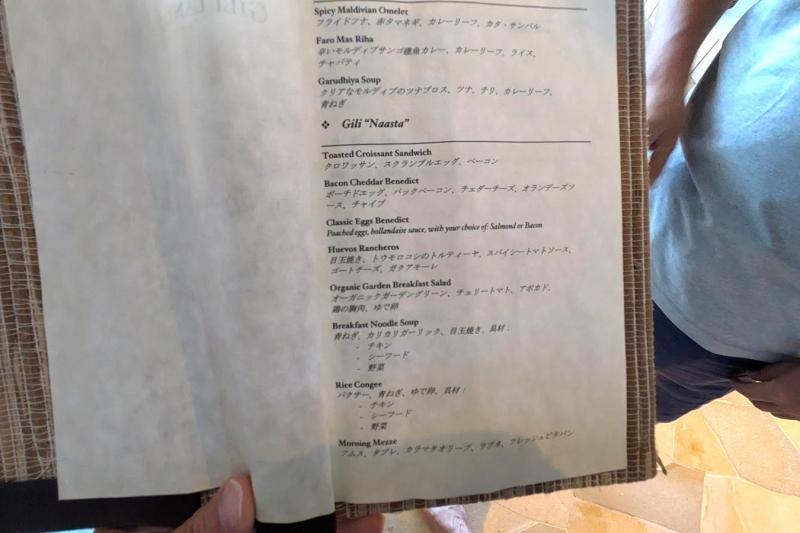 Spicy Maldivian Omelet
フライドツナ、赤タマネギ、カレーリーフ、カタ・サンバル
Faro Mas Riha
辛いモルディブサンゴ礁魚カレー、カレーリーフ、ライス、
チャパティ
Garudhiya Soup
クリアなモルディブのツナブロス、ツナ、チリ、カレーリーフ、
青ねぎ
❖ Gili "Naasta"
Toasted Croissant Sandwich
クロワッサン、スクランブルエッグ、ベーコン
Bacon Cheddar Benedict
ポーチドエッグ、バックベーコン、チェダーチーズ、オランデーズソ
ース、チャイブ
Classic Eggs Benedict
Poached eggs, hollandaise sauce, with your choice of: Salmond or Bacon
Huevos Rancheros
目玉焼き、トウモロコシのトルティーヤ、スパイシートマトソース、
ゴートチーズ、ガクアモーレ
Organic Garden Breakfast Salad
オーガニックガーデングリーン、チェリートマト、アボカド、
鶏の胸肉、ゆで卵
Breakfast Noodle Soup
青ねぎ、カリカリガーリック、目玉焼き、具材：
- チキン
- シーフード
- 野菜
Rice Congee
パクチー、青ねぎ、ゆで卵、具材：
- チキン
- シーフード
- 野菜
Morning Mezze
フムス、タブレ、カラマタオリーブ、ラブネ、フレッシュピタパン